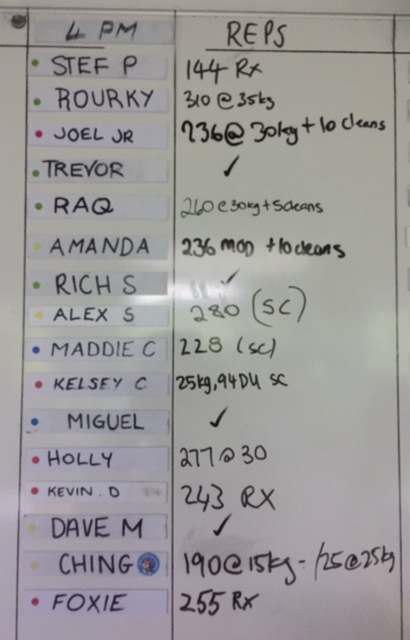 4 PM REPS
STEF P 144 RX
ROURKY 310 @ 35kg
JOEL JR 236@ 30kg + 10 cleans
TREVOR ✓
RAQ 260 @ 30kg + 5 cleans
AMANDA 236 MOD + 10 cleans
RICH S ✓
ALEX S 280 (SC)
MADDIE C 228 (SC)
KELSEY C 25kg, 94 DU SC
MIGUEL ✓
HOLLY 277 @ 30
KEVIN . D 243 RX
DAVE M ✓
CHING 190@15kg - /25@25kg
FOXIE 255 RX